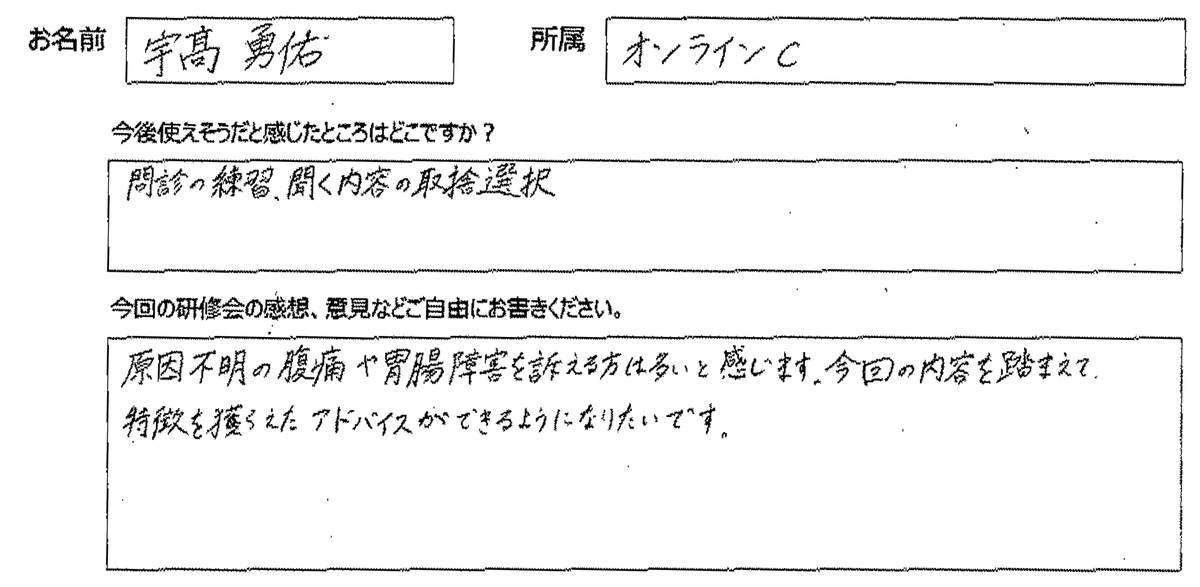 お名前 宇髙 勇佑 所属 オンラインC
今後使えそうだと感じたところはどこですか？
問診の練習、聞く内容の取捨選択
今回の研修会の感想、意見などご自由にお書きください。
原因不明の腹痛や胃腸障害を訴える方は多いと感じます。今回の内容を踏まえて
特徴を獲らえたアドバイスができるようになりたいです。